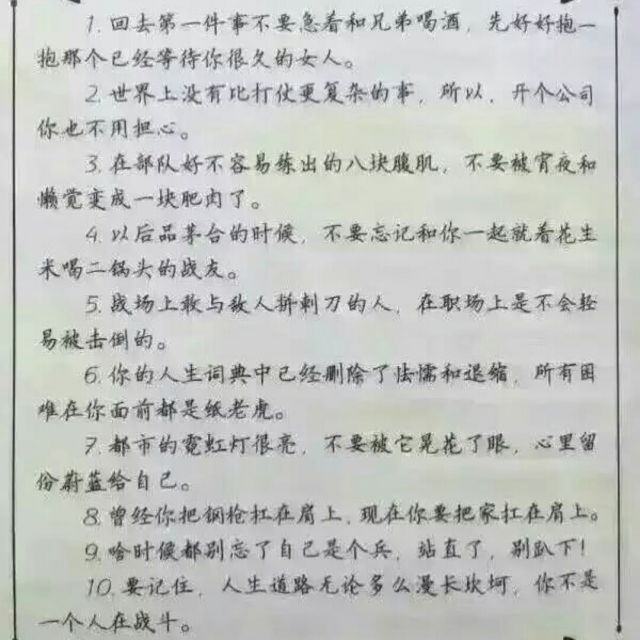 1. 回去第一件事不要急着和兄弟喝酒，先好好抱一
抱那个已经等待你很久的女人。
2. 世界上没有比打仗更复杂的事，所以，开个公司
你也不用担心。
3. 在部队好不容易练出的八块腹肌，不要被宵夜和
懒觉变成一块肥肉了。
4. 以后品茅台的时候，不要忘记和你一起就着花生
米喝二锅头的战友。
5. 战场上敢与敌人拼刺刀的人，在职场上是不会轻
易被击倒的。
6. 你的人生词典中已经删除了怯懦和退缩，所有困
难在你面前都是纸老虎。
7. 都市的霓虹灯很亮，不要被它晃花了眼，心里留
份蔚蓝给自己。
8. 曾经你把钢枪扛在肩上，现在你要把家扛在肩上。
9. 啥时候都别忘了自己是个兵，站直了，别趴下！
10. 要记住，人生道路无论多么漫长坎坷，你不是
一个人在战斗。